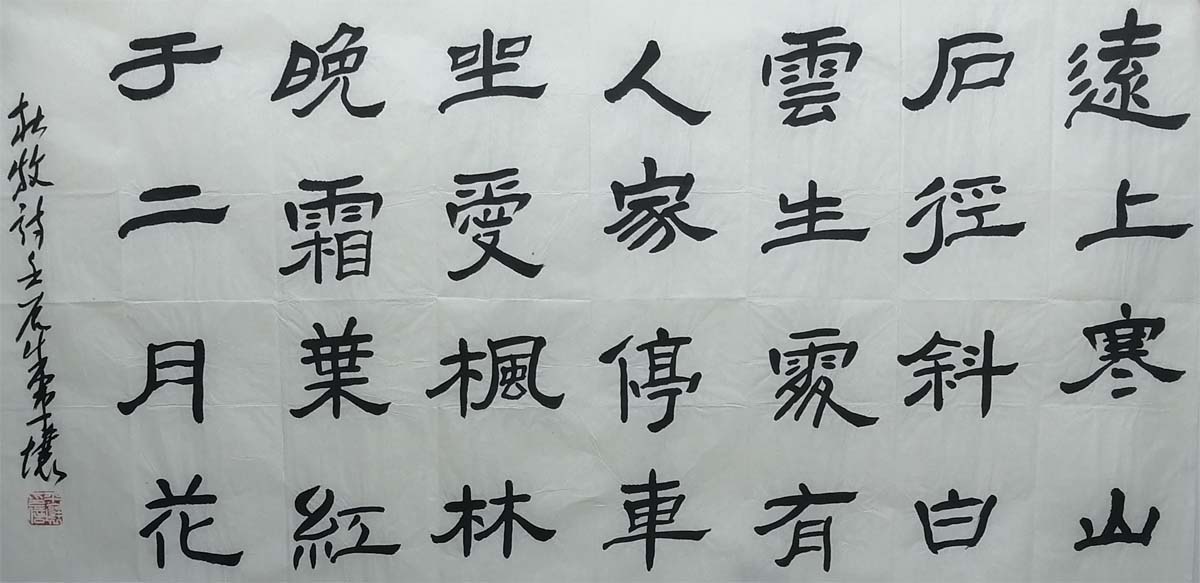 遠上寒山
石徑斜白
雲生處有
人家停車
坐愛楓林
晚霜葉紅
于二月花
杜牧詩壬辰年